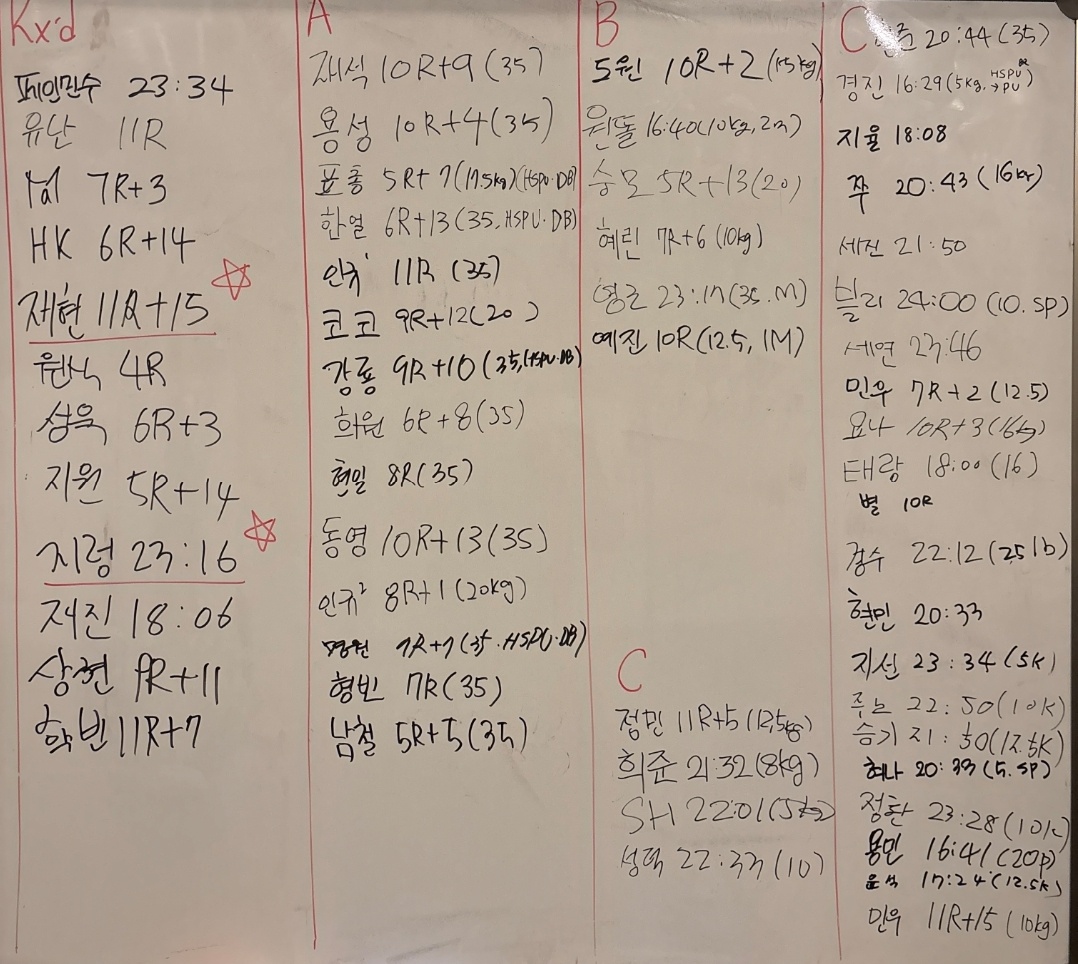 Rx'd
페인민수 23:34
유난 11R
7R+3
HK 6R+14
재현 11R+15
원식 4R
상욱 6R+3
지원 5R+14
지렁 23:16
재진 18:06
상현 9R+11
학빈 11R+7
A
재석 10R+9 (35)
용성 10R+4 (35)
표총 5R+7 (17.5kg) (HSPU·DB)
한얼 6R+13 (35, HSPU·DB)
인규¹ 11R (35)
코코 9R+12 (20)
강룡 9R+10 (35, HSPU·DB)
희원 6R+8 (35)
현일 8R (35)
동영 10R+13 (35)
인규² 8R+1 (20kg)
명원 7R+7 (35·HSPU·DB)
형빈 7R (35)
남철 5R+5 (35)
B
5원 10R+2 (15kg)
원똘 16:40 (10kg, 2m)
승모 5R+13 (20)
혜린 7R+6 (10kg)
영근 23:17 (35.M)
예진 10R (12.5, 1M)
C
정민 11R+5 (12.5kg)
희준 21:32 (8kg)
SH 22:01 (5kg)
성덕 22:33 (10)
C
20:44 (35)
경진 16:29 (5kg, HSPU→PU)
지율 18:08
쭈 20:43 (16kg)
세진 21:50
블리 24:00 (10. SP)
세연 23:46
민우 7R+2 (12.5)
요나 10R+3 (16kg)
태랑 18:00 (16)
별 10R
경수 22:12 (25lb)
현민 20:33
지선 23:34 (5K)
주노 22:50 (10K)
승기 21:50 (12.5K)
혜나 20:33 (5. SP)
정환 23:28 (10K)
용민 16:41 (20p)
윤석 17:24 (12.5K)
민우 11R+15 (10kg)